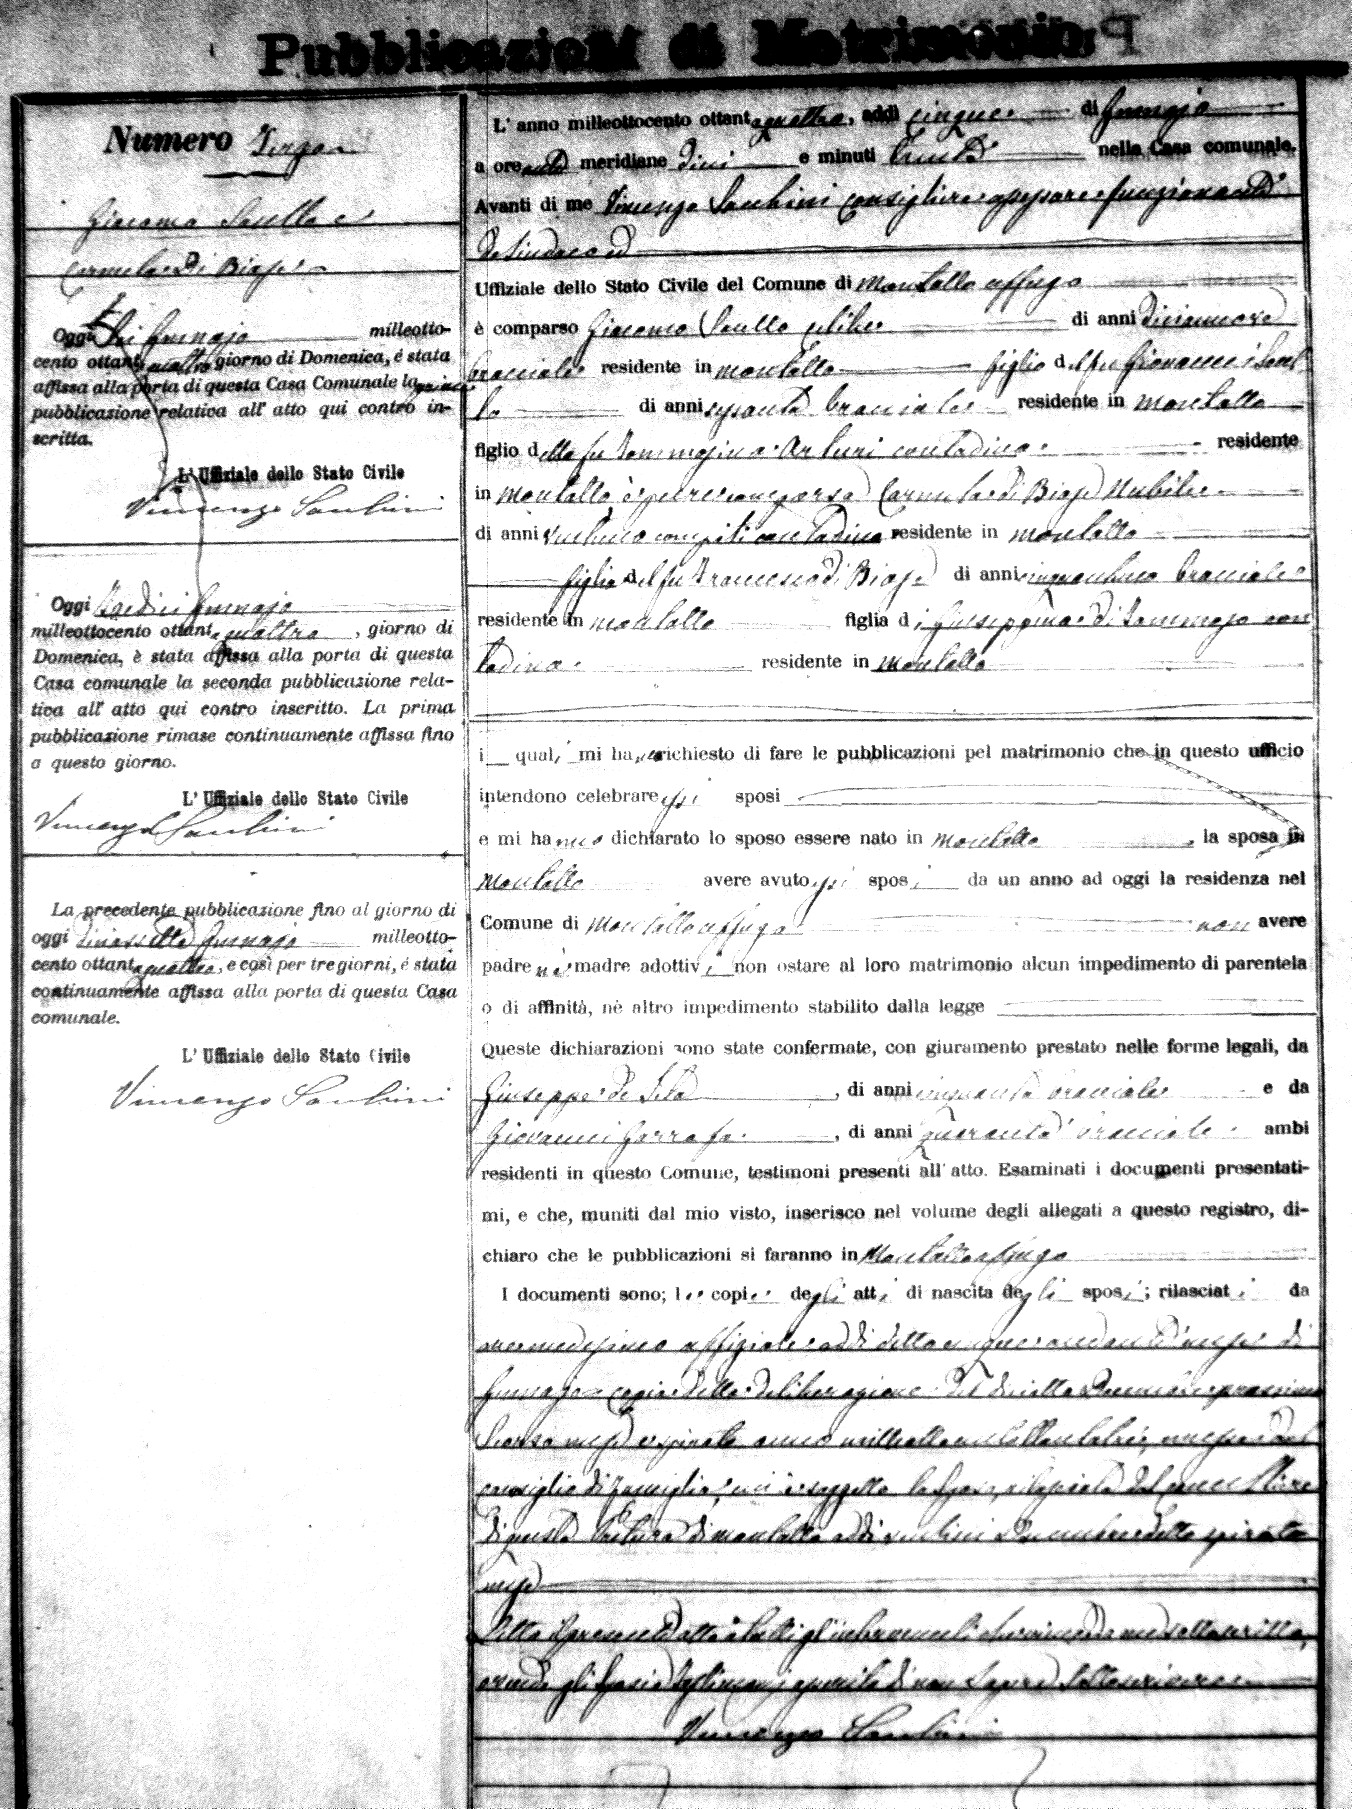 Pubblicazioni di Matrimonio
Numero Terzo
Giacomo Saullo e
Carmela Di Biase
Oggi Sei Gennajo milleotto-
cento ottantaquattro giorno di Domenica, é stata
affissa alla porta di questa Casa Comunale la prima
pubblicazione relativa all' atto qui contro in-
scritta.
L'Uffiziale dello Stato Civile
Vincenzo
Oggi tredici Gennajo
milleottocento ottantaquattro, giorno di
Domenica, è stata affissa alla porta di questa
Casa comunale la seconda pubblicazione rela-
tiva all' atto qui contro inscritto. La prima
pubblicazione rimase continuamente affissa fino
a questo giorno.
L' Uffiziale dello Stato Civile
Vincenzo
La precedente pubblicazione fino al giorno di
oggi diciassette Gennajo milleotto-
cento ottantaquattro, e così per tre giorni, é stata
continuamente affissa alla porta di questa Casa
comunale.
L' Uffiziale dello Stato Civile
Vincenzo
L' anno milleottocento ottantaquattro, addì cinque di Gennajo
a ore anti meridiane dieci e minuti trenta nella Casa comunale.
Avanti di me Vincenzo consigliere assessore funzionante
da Sindaco ed
Uffiziale dello Stato Civile del Comune di Montalto Uffugo
è comparso Giacomo Saullo celibe di anni diciannove
bracciale residente in Montalto figlio del fu Giovanni Saul
lo di anni sessanta bracciale residente in Montalto
figlio della fu Tommasina Arturi contadina residente
in Montalto è pure comparsa Carmela di Biase Nubile
di anni ventuno compiti contadina residente in Montalto
figlia del fu Francesco di Biase di anni cinquantuno bracciale
residente in Montalto figlia di Giuseppina di Tommaso con
tadina residente in Montalto
i quali mi hanno richiesto di fare le pubblicazioni pel matrimonio che in questo ufficio
intendono celebrare essi sposi
e mi hanno dichiarato lo sposo essere nato in Montalto la sposa in
Montalto avere avuto essi sposi da un anno ad oggi la residenza nel
Comune di Montalto Uffugo non avere
padre nè madre adottivi non ostare al loro matrimonio alcun impedimento di parentela
o di affinità, nè altro impedimento stabilito dalla legge
Queste dichiarazioni sono state confermate, con giuramento prestato nelle forme legali, da
Giuseppe de , di anni cinquanta bracciale e da
Giovanni Garrafa, di anni quaranta bracciale ambi
residenti in questo Comune, testimoni presenti all' atto. Esaminati i documenti presentati-
mi, e che, muniti dal mio visto, inserisco nel volume degli allegati a questo registro, di-
chiaro che le pubblicazioni si faranno in Montalto Uffugo
I documenti sono; le copie degli atti di nascita degli sposi; rilasciati da
me medesimo Uffiziale addì detto cinque andante mese di
Gennajo copia della deliberazione del diciotto Decembre prossimo
scorso mese spirato anno milleottocentottantatre, emessa dal
consiglio di famiglia, cui è soggetta la sposa, rilasciata dal cancelliere
di questa Pretura di Montalto addì ventuni Decembre detto spirato
mese
Letto il presente atto a tutti gl'intervenuti si è firmato da me sottoscritto,
avendo gli sposi e testimoni asserito di non sapere sottoscrivere
Vincenzo